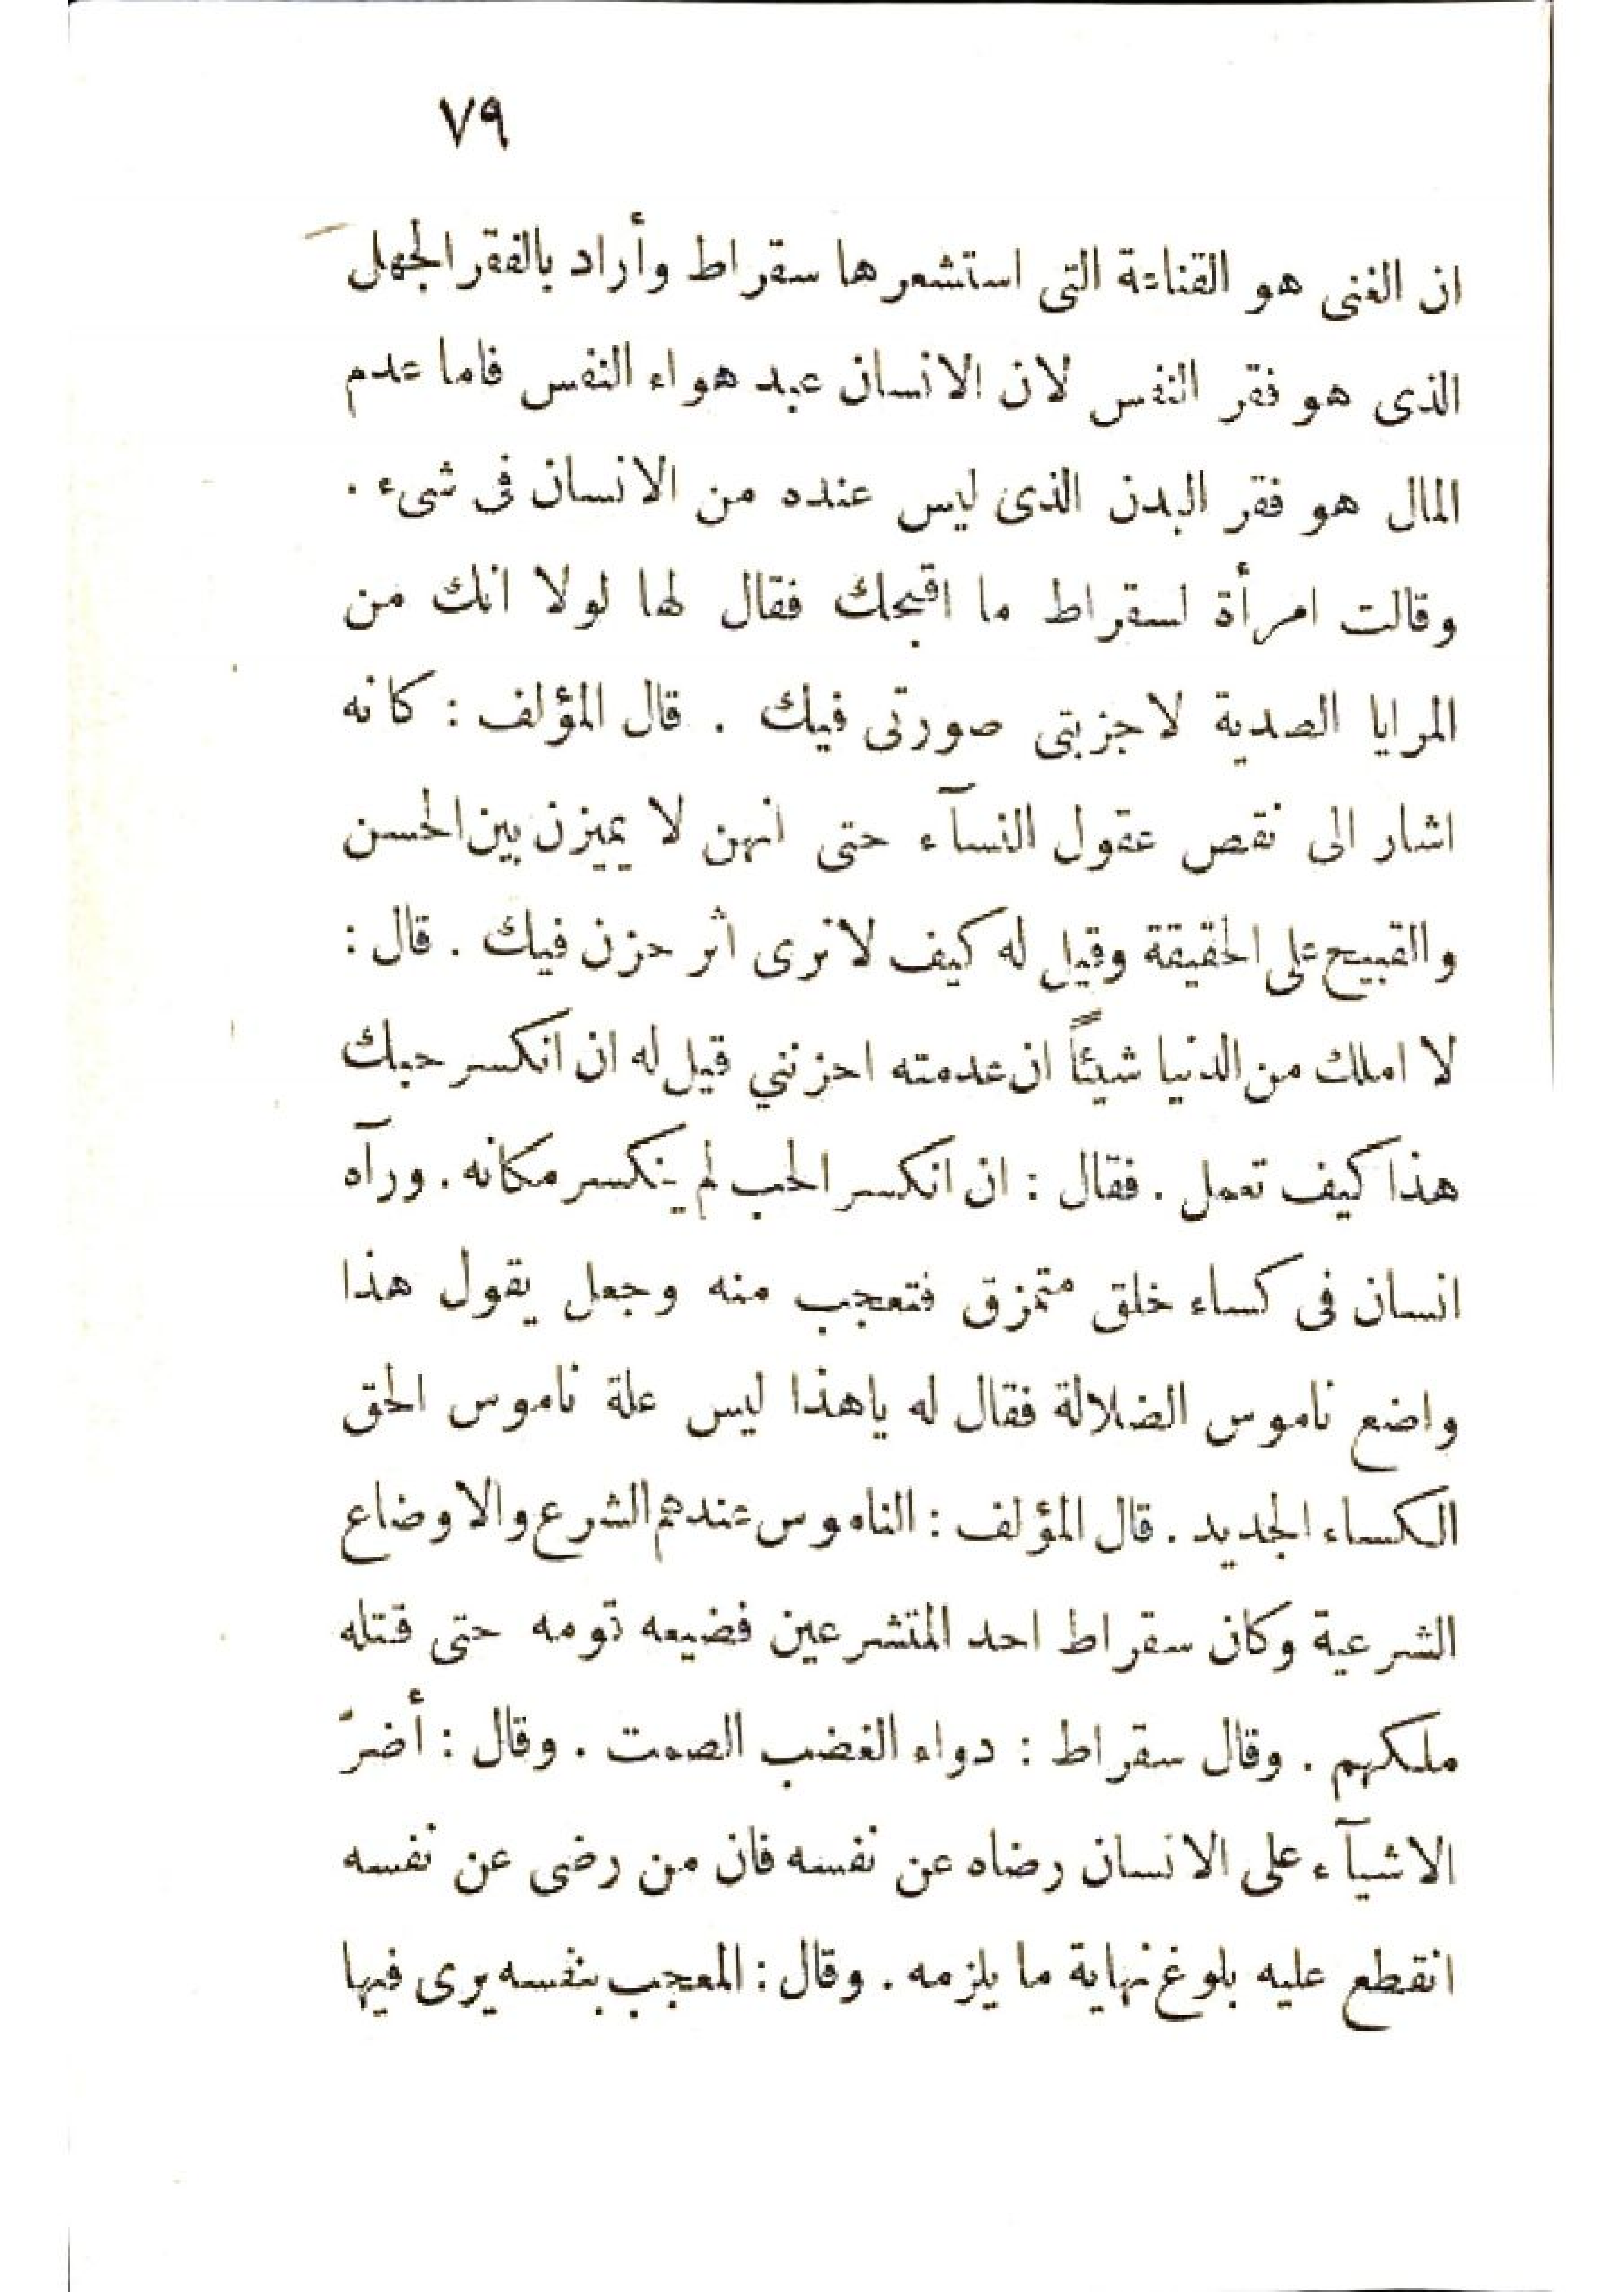 ٧٩
ان الغنى هو القناعة التى استشعرها سقراط وأراد بالفقر الجهل
الذى هو فقر النفس لان الانسان عبد هواء النفس فاما عدم
المال هو فقر البدن الذى ليس عنده من الانسان فى شىء .
وقالت امرأة لسقراط ما اقبحك فقال لها لولا انك من
المرايا الصدية لاجزبتى صورتى فيك . قال المؤلف : كانه
اشار الى نقص عقول النسآء حتى انهن لا يميزن بين الحسن
والقبيح على الحقيقة وقيل له كيف لا نرى اثر حزن فيك . قال :
لا املك من الدنيا شيئاً ان عدمته احزنني قيل له ان انكسر حبك
هذا كيف تعمل . فقال : ان انكسر الحب لم ينكسر مكانه . ورآه
انسان فى كساء خلق متمزق فتعجب منه وجعل يقول هذا
واضع ناموس الضلالة فقال له ياهذا ليس علة ناموس الحق
الكساء الجديد . قال المؤلف : الناموس عندهم الشرع والاوضاع
الشرعية وكان سقراط احد المتشرعين فضيعه قومه حتى قتله
ملكهم . وقال سقراط : دواء الغضب الصمت . وقال : أضرّ
الاشيآء على الانسان رضاه عن نفسه فان من رضى عن نفسه
انقطع عليه بلوغ نهاية ما يلزمه . وقال : المعجب بنفسه يرى فيها